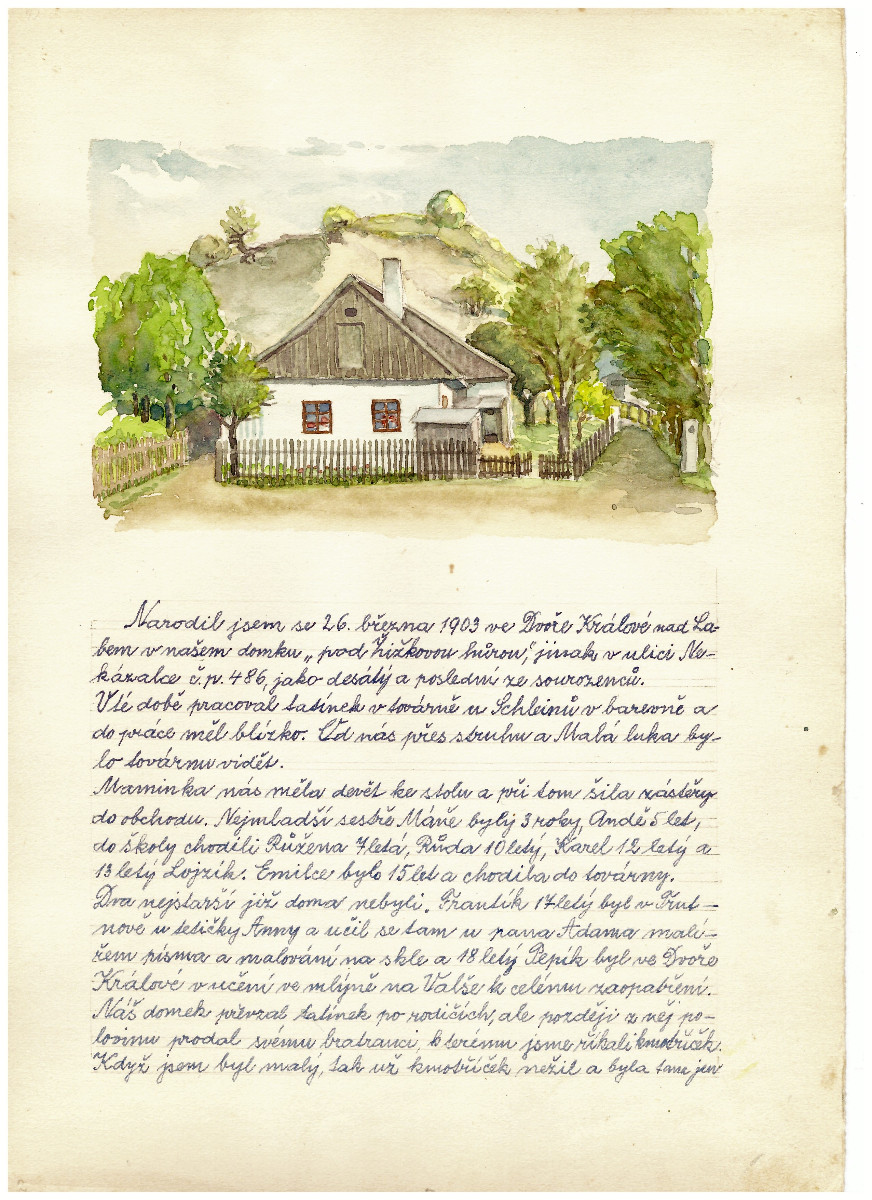 Narodil jsem se 26. března 1903 ve Dvoře Králové nad La-
bem v našem domku „pod Žižkovou hůrou", jinak v ulici Ne-
kázalce č.p. 486, jako desátý a poslední ze sourozenců.
V té době pracoval tatínek v továrně u Schleinů v barevně a
do práce měl blízko. Od nás přes struhu a Malá luka by-
lo továrnu vidět.
Maminka nás měla devět ke stolu a při tom šila zástěry
do obchodu. Nejmladší sestře Máně byly 3 roky, Andě 5 let,
do školy chodili Růžena 7letá, Růda 10letý, Karel 12letý a
13letý Lojzík. Emilce bylo 15 let a chodila do továrny.
Dva nejstarší již doma nebyli. Frantík 17letý byl v Trut-
nově u tetičky Anny a učil se tam u pana Adama malí-
řem písma a malování na skle a 18letý Pepík byl ve Dvoře
Králové v učení ve mlýně na Valše k celému zaopatření.
Náš domek převzal tatínek po rodičích, ale později z něj po-
lovinu prodal svému bratranci, kterému jsme říkali kmotříček.
Když jsem byl malý, tak už kmotříček nežil a byla tam jen